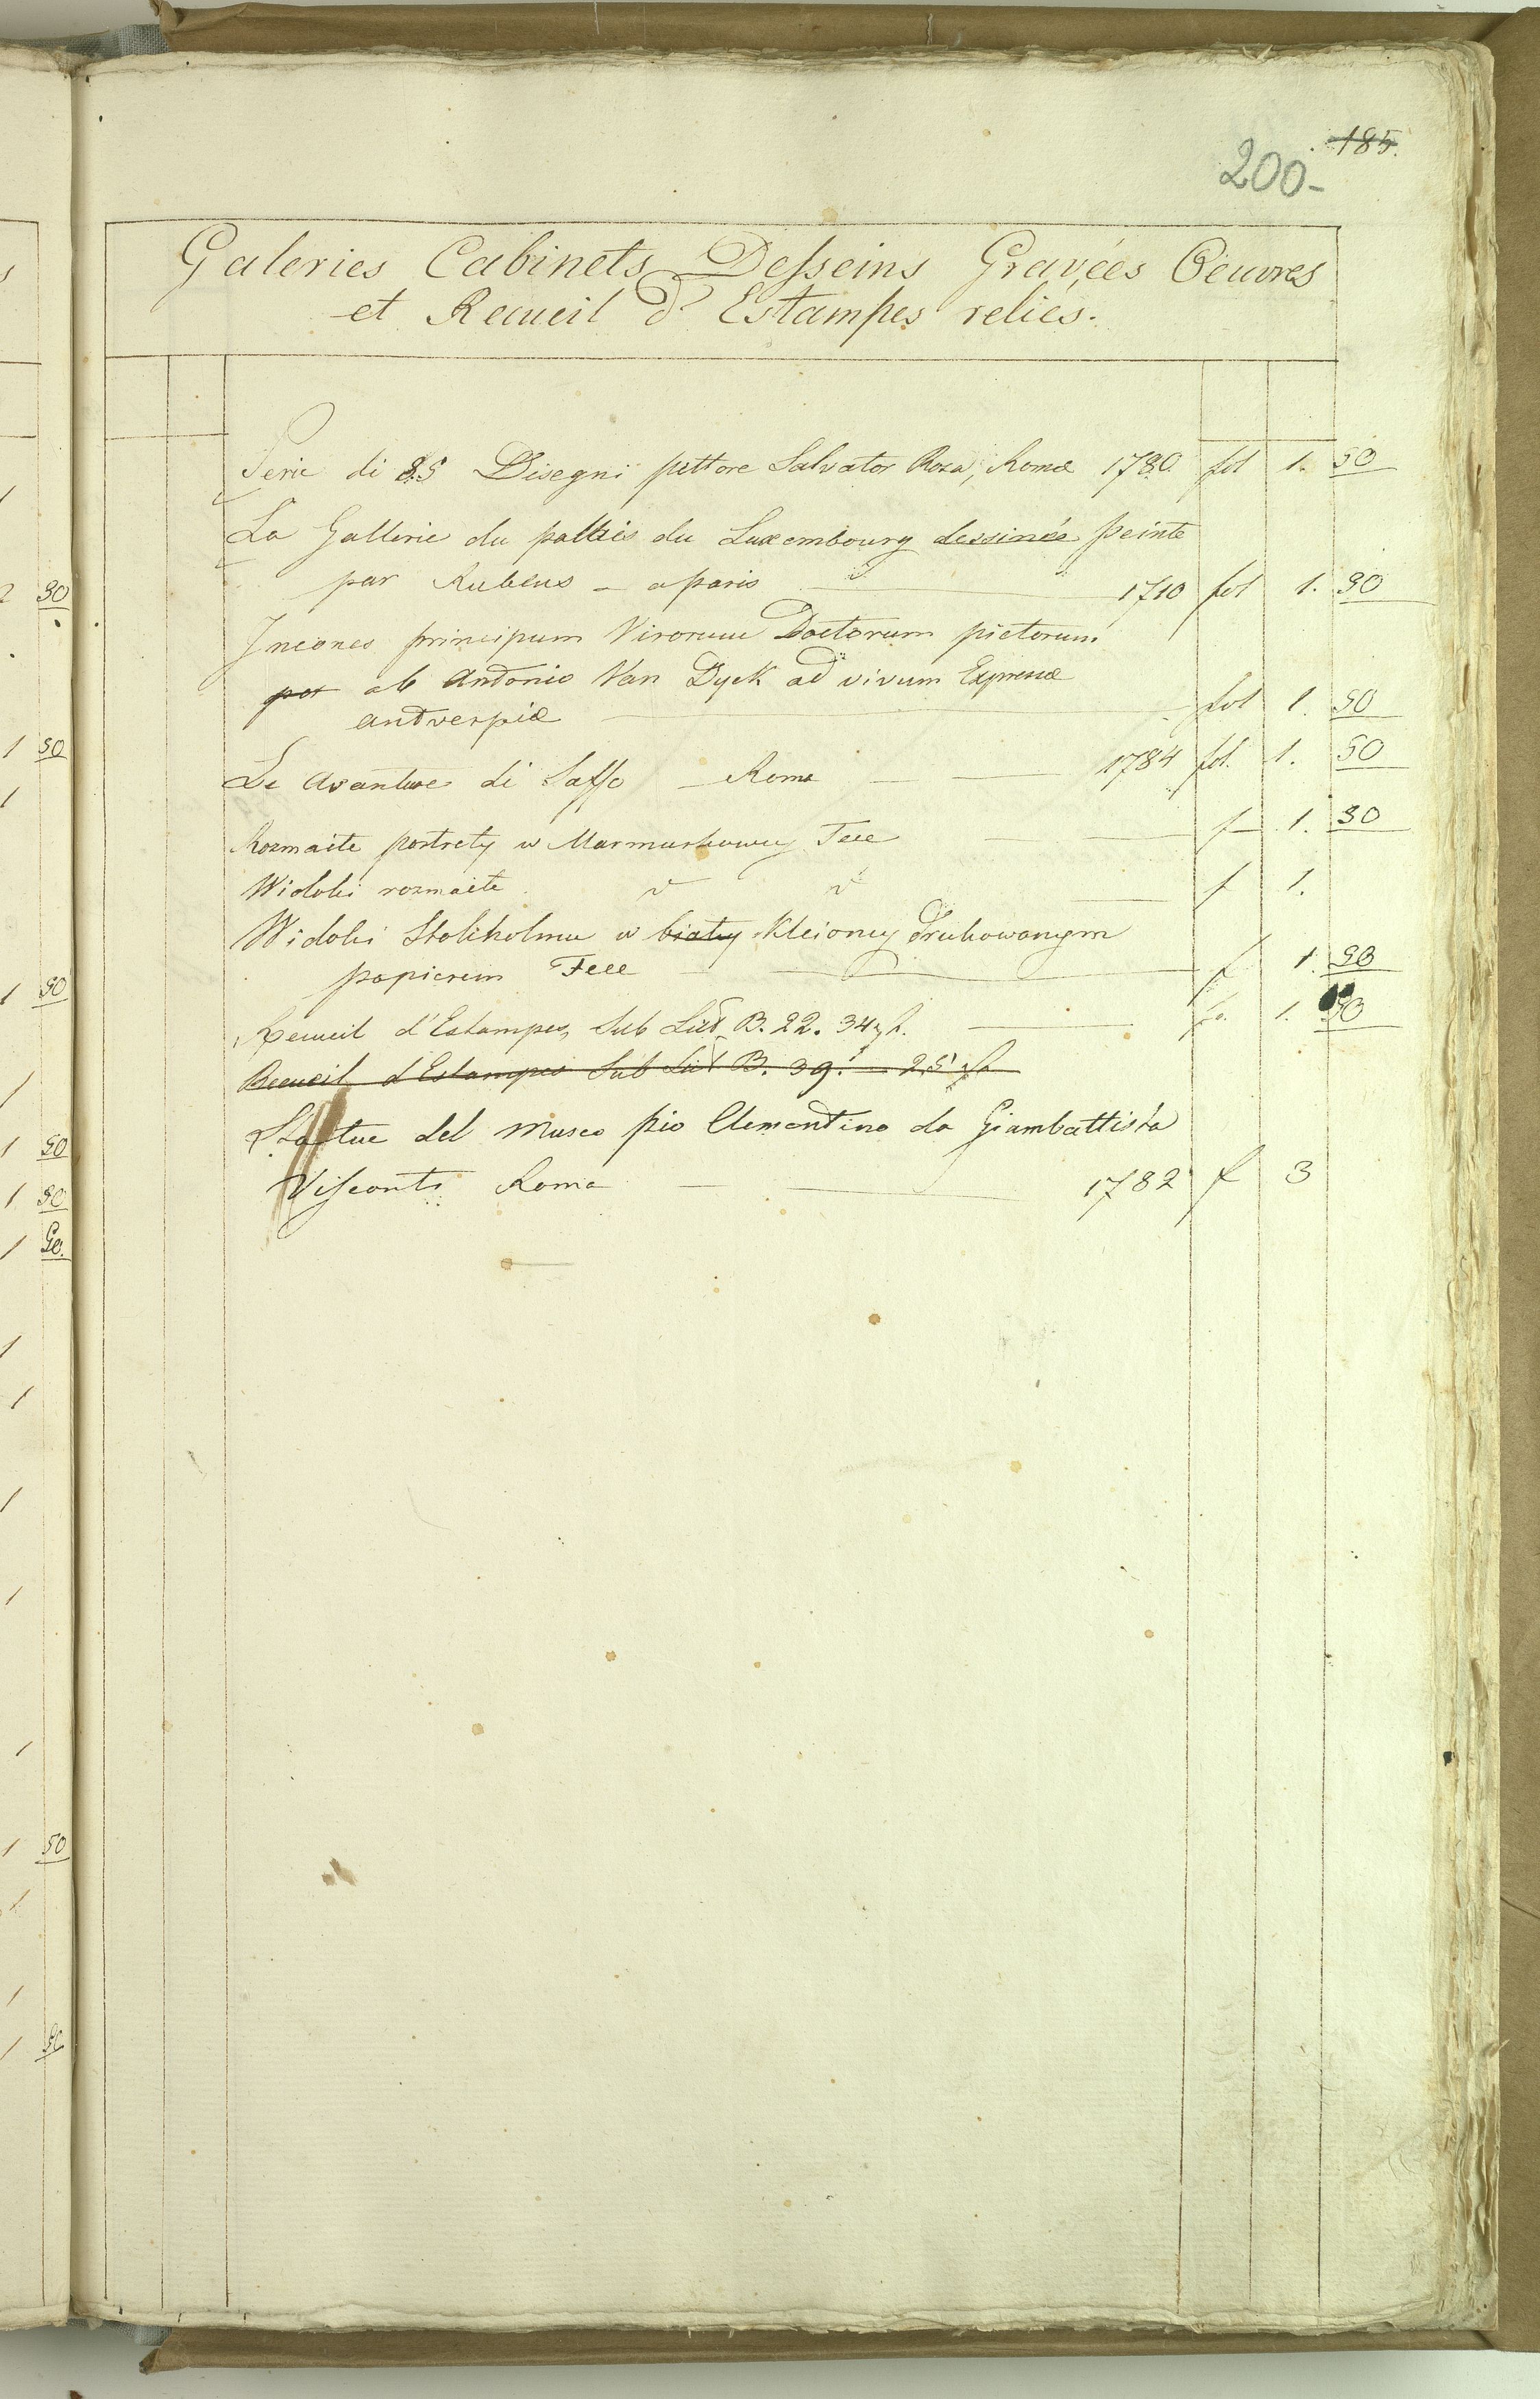 185.
200-
Galeries Cabinets Desseins Gravées Oeuvres
et Recueil d'Estampes reliés.
Serie di 85 Disegni pittore Salvator Roza, Romæ 1780 fol 1. 50
La Gallerie du du Luxembourg dessinée peinte
par Rubens - a paris 1710 fol 1. 90
Incones principum Virorum Doctorum pictorum
per ab Antonio Van Dyck ad vivum Expressæ
antverpiæ fol 1. 50
Le Avanture di Saffo - Roma 1784 fol. 1. 50
Rozmaite portrety w Marmurkowey Tece f 1. 90
Widoki rozmaite f 1.
Widoki Stokholmu w białey Kleioney drukowanym
papierem Tece f 1. 90
Recueil d'Estampes, Sub Lit B. 22. 34 fo. 1. 90
Recueil d'Estampes Sub Lit B. 39. 25
Statue del Museo pio Clementino da Giambattista
Visconti Roma 1782 f 3
90
1 50
1
1 50
1
1 50
1 90
1 90.
1
1
1
1
1
1 50
1
1
1